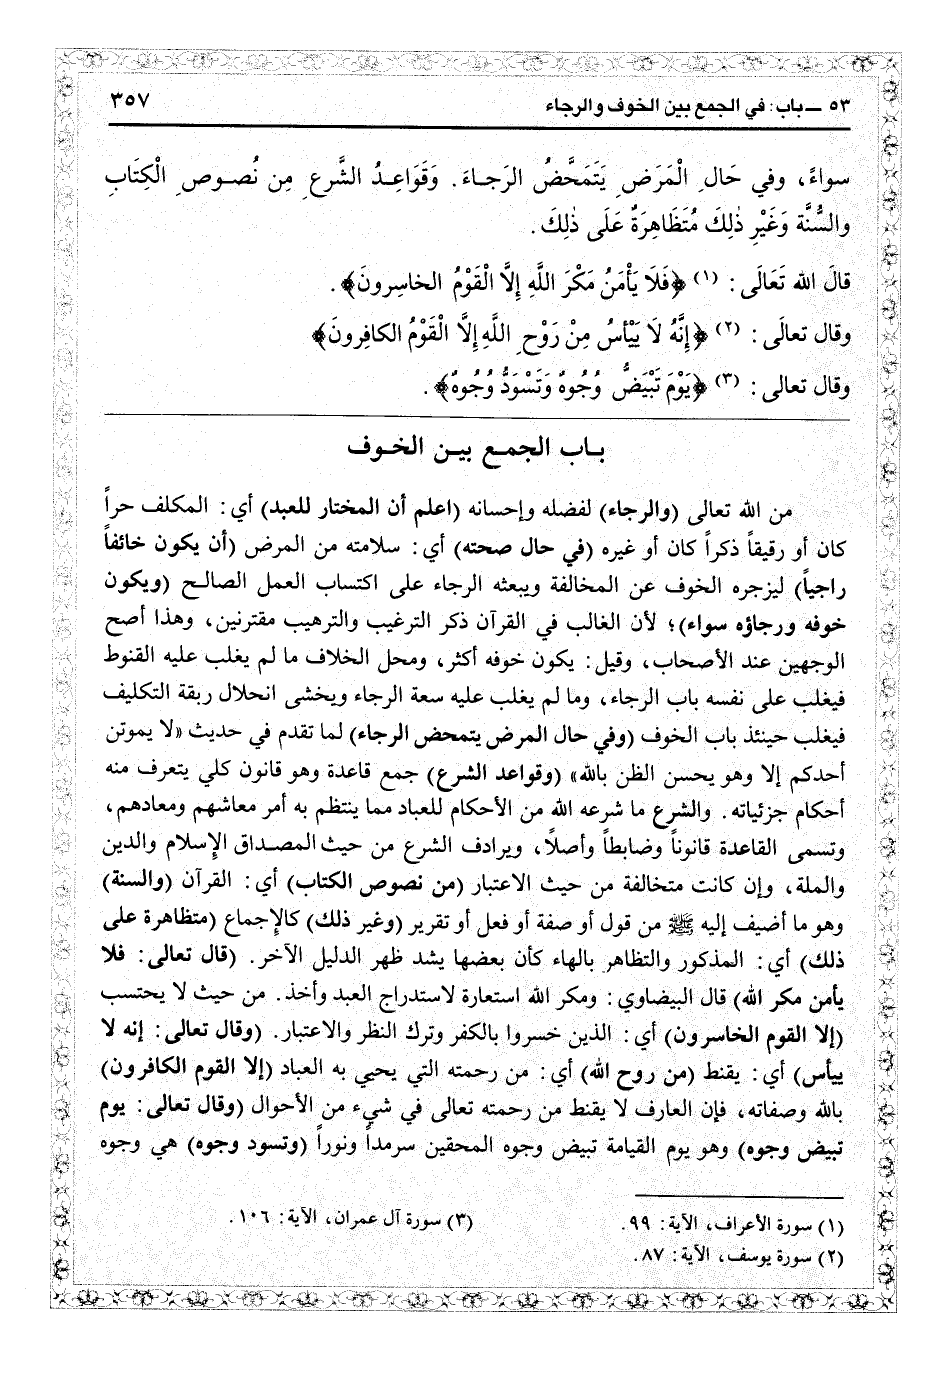 ٥٣ ـ باب: في الجمع بين الخوف والرجاء
٣٥٧
سواءً، وفي حَالِ الْمَرَضِ يَتَمَحَّضُ الرَجاءَ. وَقَوَاعِدُ الشَّرعِ مِن نُصوصِ الْكِتَابِ
والسُّنَّة وَغَيْرِ ذٰلِكَ مُتَظَاهِرَةٌ عَلَى ذٰلِكَ.
قالَ الله تَعَالَى: (١) ﴿فَلَا يَأْمَنُ مَكْرَ اللَّهِ إِلَّا الْقَوْمُ الخاسِرونَ﴾.
وقال تعالَى: (٢) ﴿إِنَّهُ لَا يَيْأسُ مِنْ رَوْحِ اللَّهِ إِلَّا الْقَوْمُ الكافِرونَ﴾
وقال تعالى: (٣) ﴿يَوْمَ تَبْيَضُّ وُجُوهٌ وَتَسْوَدُّ وُجُوهٌ﴾.
باب الجمع بين الخوف
من الله تعالى (والرجاء) لفضله وإحسانه (اعلم أن المختار للعبد) أي: المكلف حراً
كان أو رقيقاً ذكراً كان أو غيره (في حال صحته) أي: سلامته من المرض (أن يكون خائفاً
راجياً) ليزجره الخوف عن المخالفة ويبعثه الرجاء على اكتساب العمل الصالح (ويكون
خوفه ورجاؤه سواء)؛ لأن الغالب في القرآن ذكر الترغيب والترهيب مقترنين، وهذا أصح
الوجهين عند الأصحاب، وقيل: يكون خوفه أكثر، ومحل الخلاف ما لم يغلب عليه القنوط
فيغلب على نفسه باب الرجاء، وما لم يغلب عليه سعة الرجاء ويخشى انحلال ربقة التكليف
فيغلب حينئذ باب الخوف (وفي حال المرض يتمحض الرجاء) لما تقدم في حديث «لا يموتن
أحدكم إلا وهو يحسن الظن بالله» (وقواعد الشرع) جمع قاعدة وهو قانون كلي يتعرف منه
أحكام جزئياته. والشرع ما شرعه الله من الأحكام للعباد مما ينتظم به أمر معاشهم ومعادهم،
وتسمى القاعدة قانوناً وضابطاً وأصلاً، ويرادف الشرع من حيث المصداق الإسلام والدين
والملة، وإن كانت متخالفة من حيث الاعتبار (من نصوص الكتاب) أي: القرآن (والسنة)
وهو ما أضيف إليه ﷺ من قول أو صفة أو فعل أو تقرير (وغير ذلك) كالإجماع (متظاهرة على
ذلك) أي: المذكور والتظاهر بالهاء كأن بعضها يشد ظهر الدليل الآخر. (قال تعالى: فلا
يأمن مكر الله) قال البيضاوي: ومكر الله استعارة لاستدراج العبد وأخذ. من حيث لا يحتسب
(إلا القوم الخاسرون) أي: الذين خسروا بالكفر وترك النظر والاعتبار. (وقال تعالى: إنه لا
ييأس) أي: يقنط (من روح الله) أي: من رحمته التي يحيي به العباد (إلا القوم الكافرون)
بالله وصفاته، فإن العارف لا يقنط من رحمته تعالى في شيء من الأحوال (وقال تعالى: يوم
تبيض وجوه) وهو يوم القيامة تبيض وجوه المحقين سرمداً ونوراً (وتسود وجوه) هي وجوه
(١) سورة الأعراف، الآية: ٩٩.
(٢) سورة يوسف، الآية: ٨٧.
(٣) سورة آل عمران، الآية: ١٠٦.